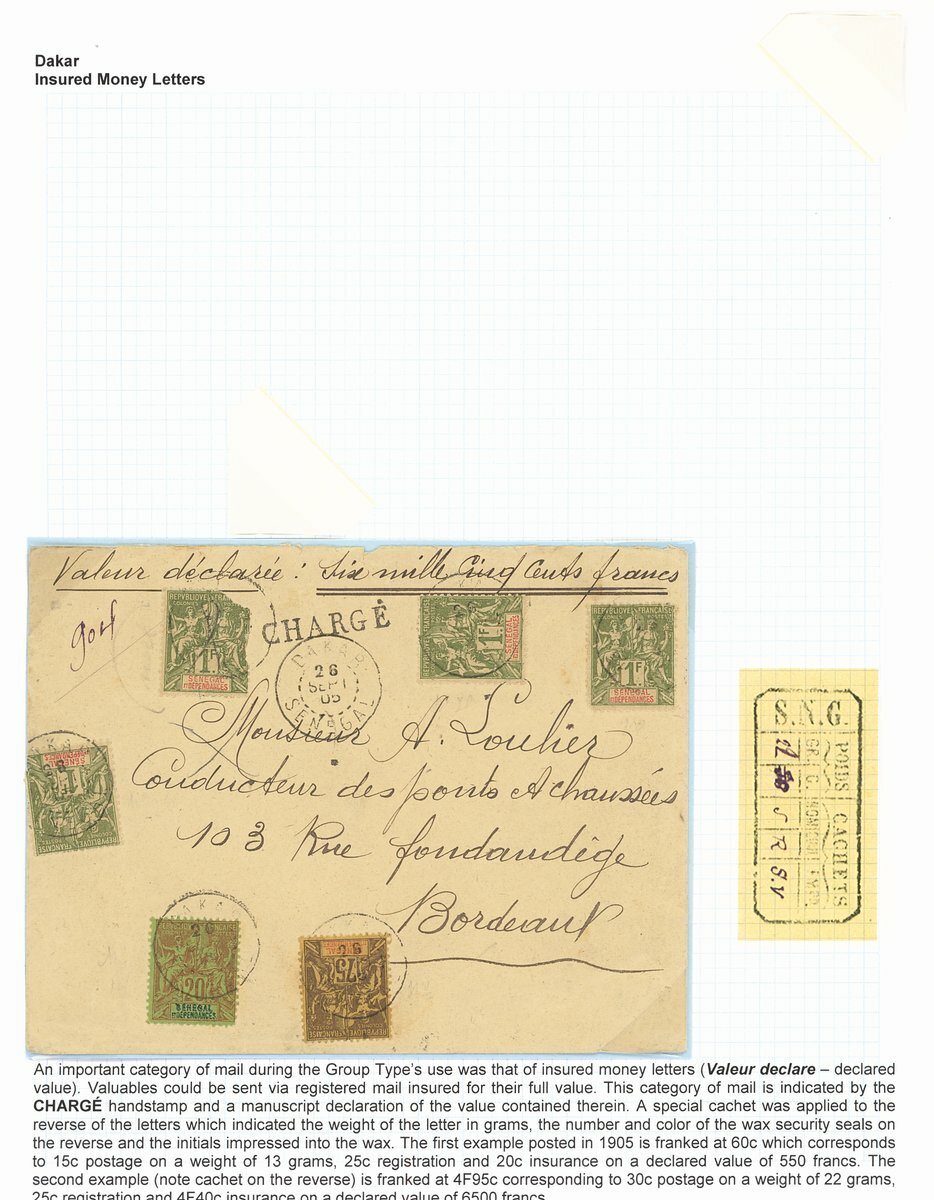 Dakar
Insured Money Letters
Valeur déclarée : Six mille Cinq Cents francs
904
CHARGÉ
DAKAR
26
SEPT
05
SENEGAL
REPVBLIQVE FRANÇAISE
1F
SENEGAL
ET DÉPENDANCES
1F
SENEGAL
ET DÉPENDANCES
REPVBLIQVE FRANÇAISE
1F
SENEGAL
ET DÉPENDANCES
Monsieur A. Loulier
Conducteur des ponts & chaussées
103 Rue fondaudège
Bordeaux
REPVBLIQVE FRANÇAISE
1F
SENEGAL
ET DÉPENDANCES
DAKAR
26
20
SENEGAL
ET DÉPENDANCES
26
75
REPVBLIQVE FRANÇAISE
S.N.G.
POIDS
CACHETS
GR.
C.
5
R
S.V
An important category of mail during the Group Type's use was that of insured money letters (Valeur declare – declared
value). Valuables could be sent via registered mail insured for their full value. This category of mail is indicated by the
CHARGÉ handstamp and a manuscript declaration of the value contained therein. A special cachet was applied to the
reverse of the letters which indicated the weight of the letter in grams, the number and color of the wax security seals on
the reverse and the initials impressed into the wax. The first example posted in 1905 is franked at 60c which corresponds
to 15c postage on a weight of 13 grams, 25c registration and 20c insurance on a declared value of 550 francs. The
second example (note cachet on the reverse) is franked at 4F95c corresponding to 30c postage on a weight of 22 grams,
25c registration and 4F40c insurance on a declared value of 6500 francs.